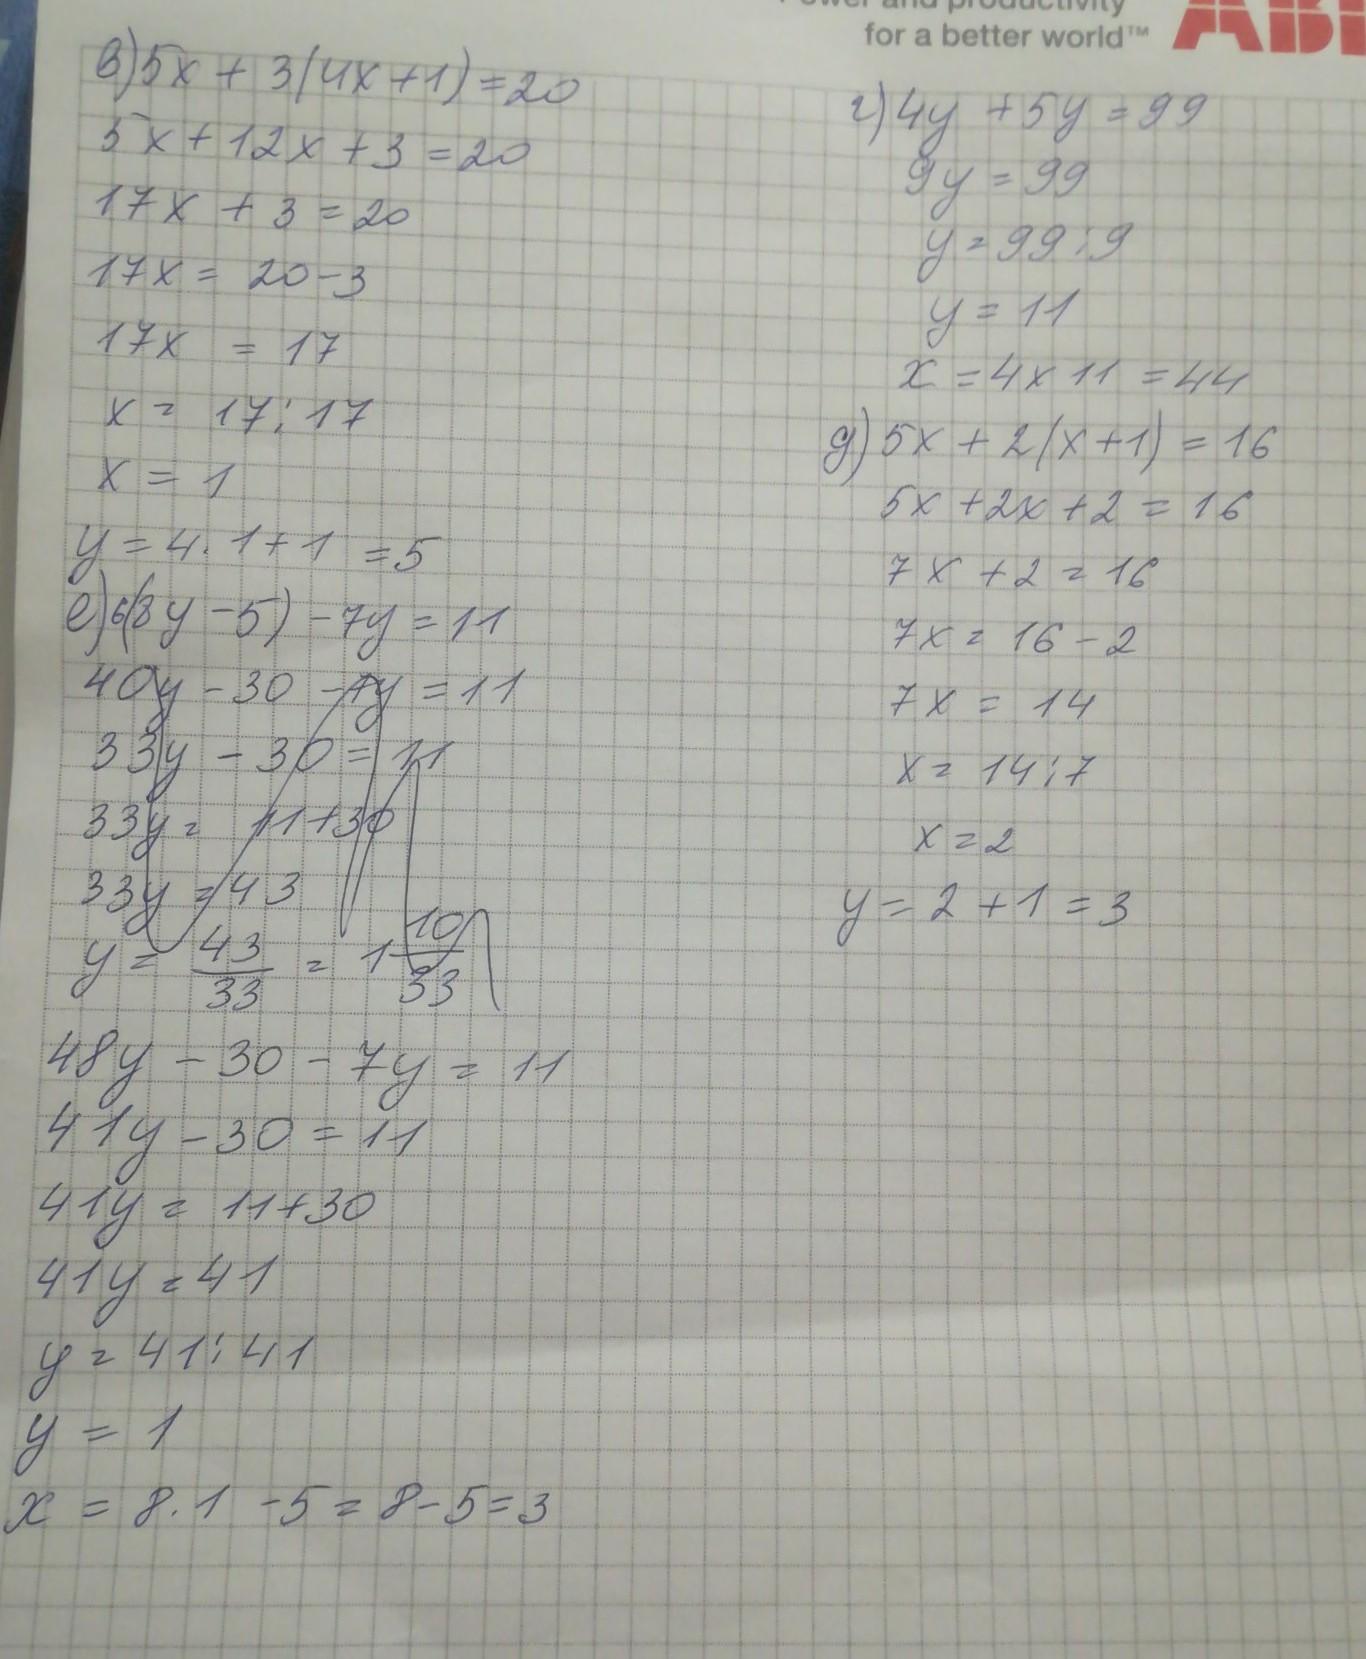 Power and productivity
for a better world™
ABB
в) 5x + 3(4x+1) = 20
5x + 12x + 3 = 20
17x + 3 = 20
17x = 20-3
17x = 17
x = 17:17
x = 1
y = 4·1+1 = 5
е) 6(8y-5) - 7y = 11
40y - 30 - 7y = 11
33y - 30 = 11
33y = 11+30
33y = 43
y = 43/33 = 1 10/33
48y - 30 - 7y = 11
41y - 30 = 11
41y = 11+30
41y = 41
y = 41:41
y = 1
x = 8·1 - 5 = 8-5=3
г) 4y + 5y = 99
9y = 99
y = 99:9
y = 11
x = 4x11 = 44
д) 5x + 2(x+1) = 16
5x + 2x + 2 = 16
7x + 2 = 16
7x = 16 - 2
7x = 14
x = 14:7
x = 2
y = 2 + 1 = 3